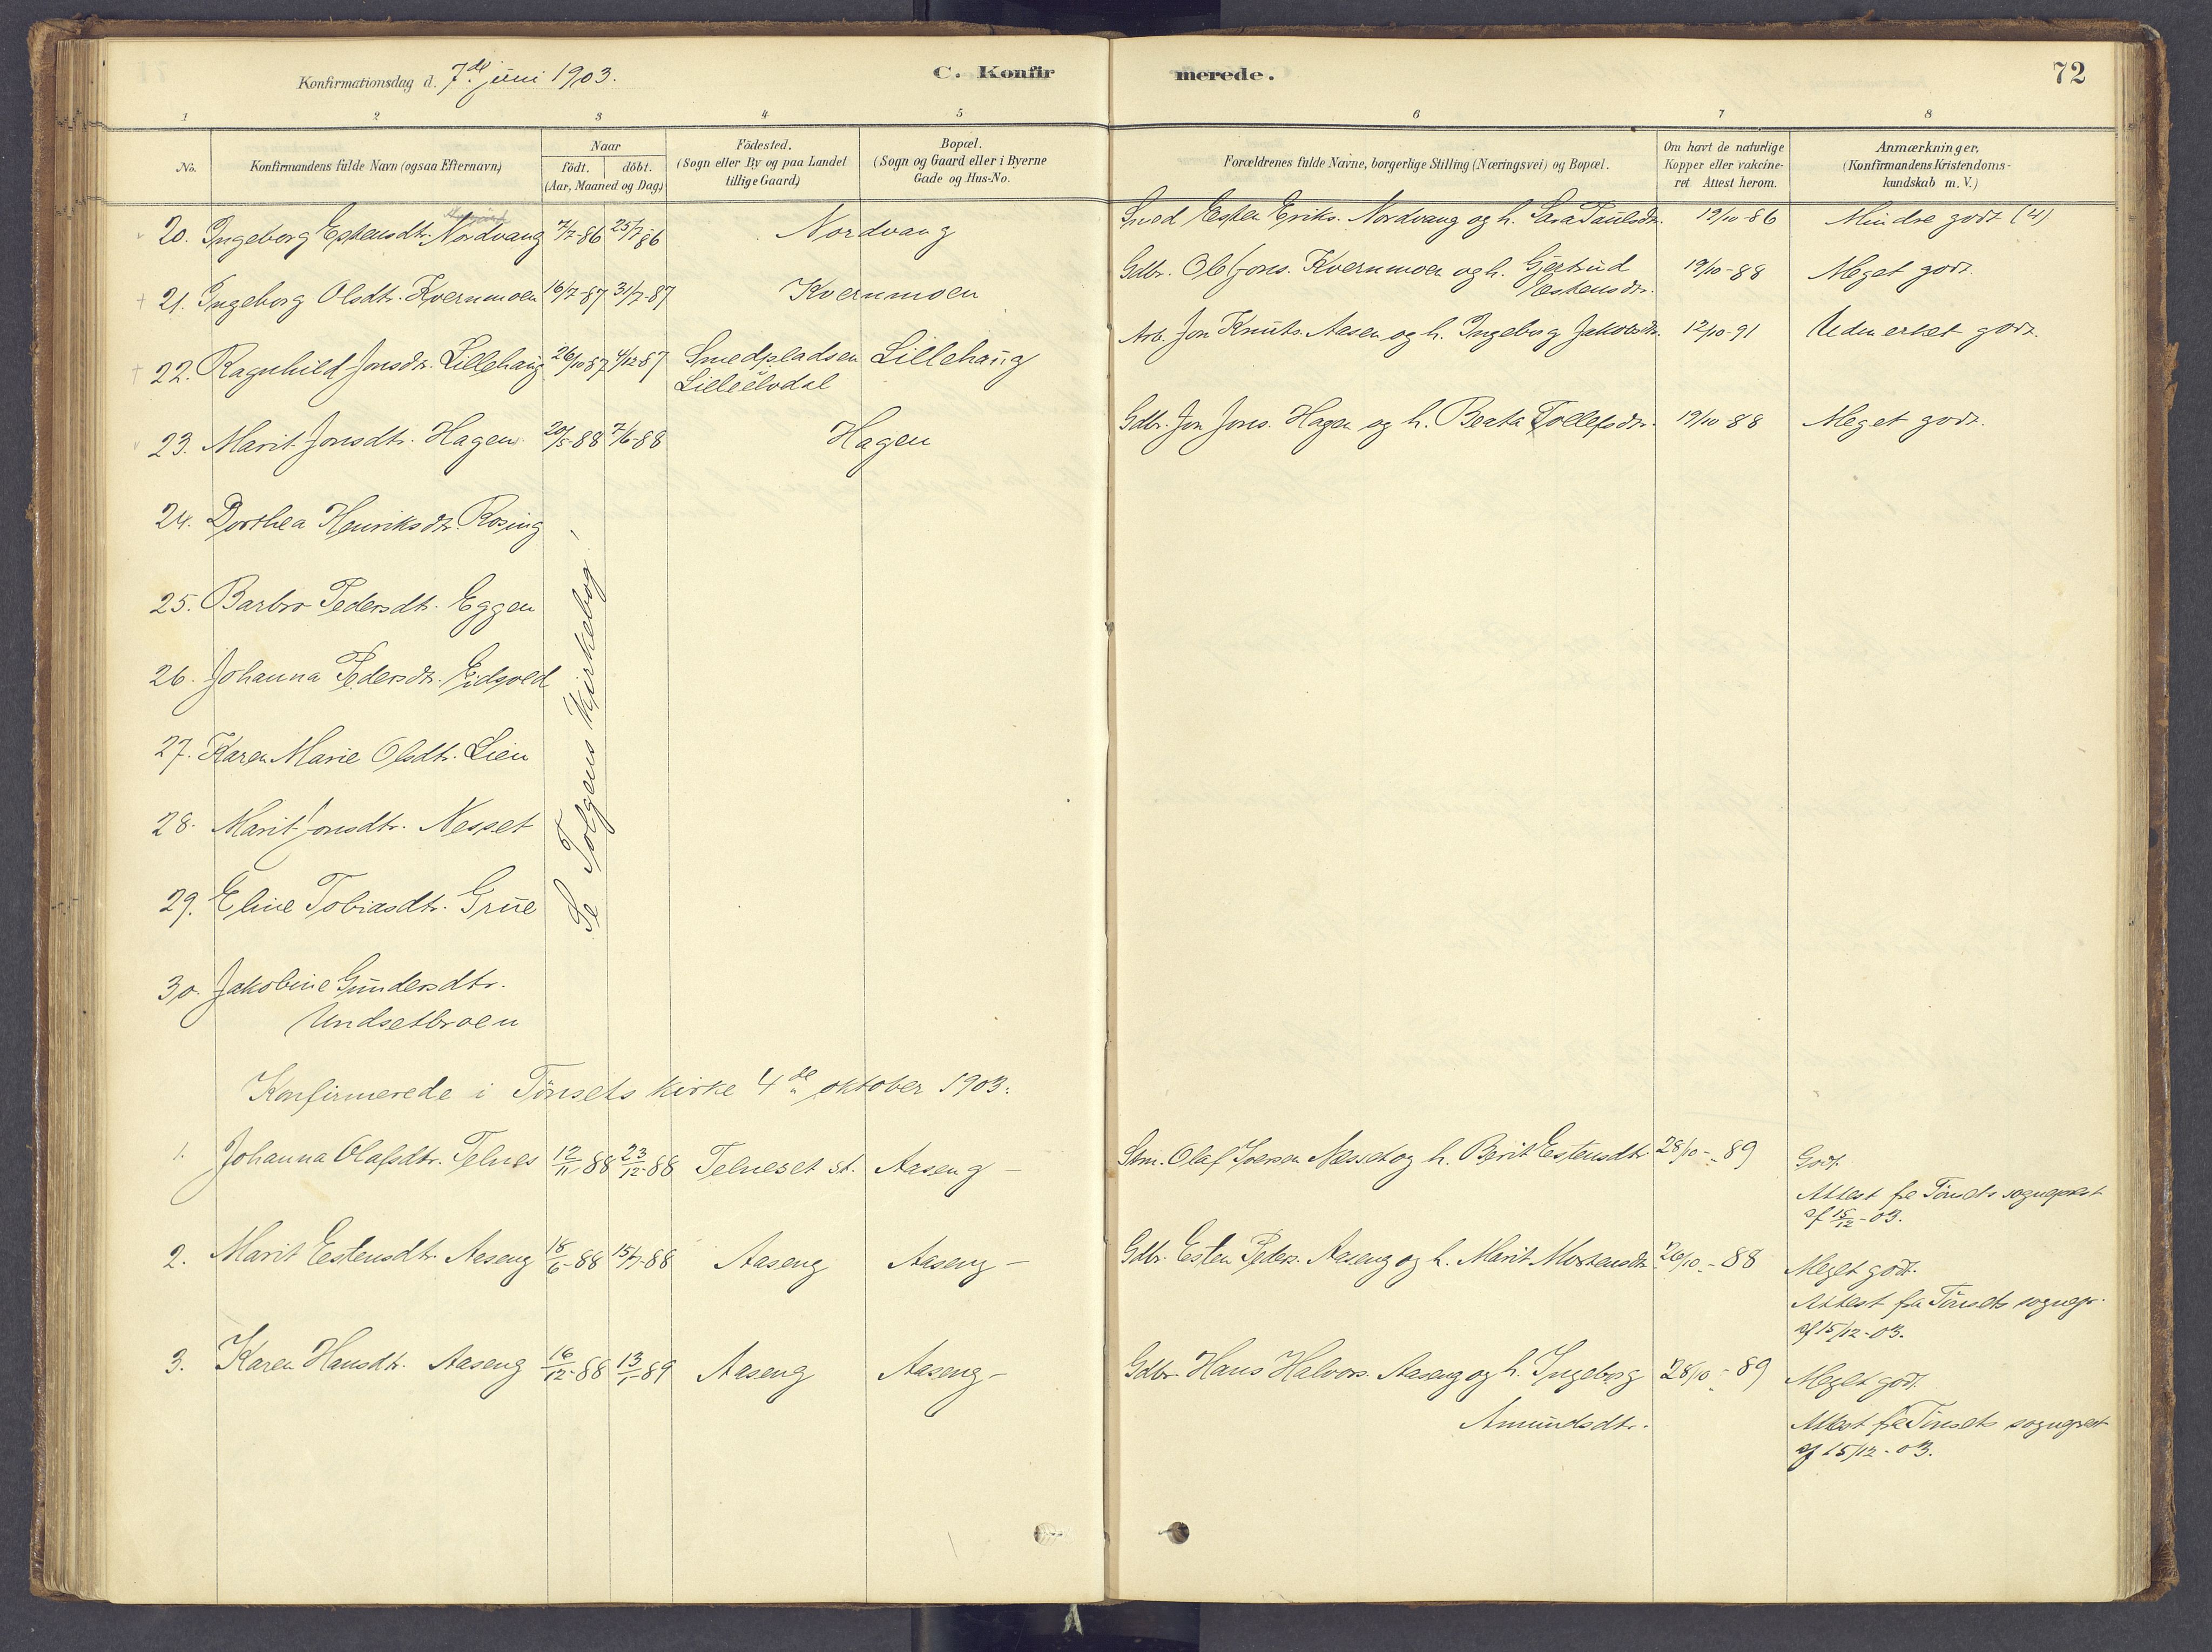 Konfirmationsdag d. 7de juni 1903.
C. Konfir
merede.
72
1 2 3 4 5 6 7 8
No.
Konfirmandens fulde Navn (ogsaa Efternavn)
Naar
födt. döbt.
(Aar, Maaned og Dag)
Födested.
(Sogn eller By og paa Landet
tillige Gaard)
Bopæl.
(Sogn og Gaard eller i Byerne
Gade og Hus-No.
Forældrenes fulde Navne, borgerlige Stilling (Næringsvei) og Bopæl.
Om havt de naturlige
Kopper eller vakcine-
ret Attest herom.
Anmærkninger,
(Konfirmandens Kristendoms-
kundskab m. V.)
20. Ingeborg Estensdtr. Nordvang 7/7-86 25/7-86 Nordvang Smed Esten Eriks. Nordvang og h. Sara Paulsdtr. 19/10-86 Mindre godt (4)
21. Ingeborg Olsdtr. Kvernmoen 16/7-87 31/7-87 Kvernmoen Gdbr. Ole Jons. Kvernmoen og h. Gjertrud 19/10-88 Meget godt.
Estensdtr.
22. Ragnhild Jonsdtr. Lillehaug 26/10 87 4/12 87 Smedpladsen Lillehaug Arb. Jon Knuts. Aasen og h. Ingeborg Jakobsdtr. 12/10-91 Udmerket godt.
Lilleelvdal
23. Marit Jonsdtr. Hagen 20/5-88 7/6-88 Hagen Gdbr. Jon Jons. Hagen og h. Beata Tollefsdtr. 19/10 88 Meget godt.
24. Dorthea Henriksdtr. Rosing
25. Barbro Pedersdtr. Eggen
26. Johanna Pedersdtr. Eidsvold
27. Karen Marie Olsdtr. Lien
28. Marit Jonsdtr. Nesset
29. Eline Tobiasdtr. Grue
30. Jakobine Gundersdtr.
Undsetbroen
Se Tolgens Kirkebog!
Konfirmerede i Tönsets kirke 4de oktober 1903.
1. Johanna Olafsdtr. Telnes 12/11 88 23/12 88 Telneset st. Aaseng – Stm. Olaf Iversen Nesset og h. Berit Estensdtr. 28/10-89 Godt.
Attest fra Tönsets sogneprest
af 15/12-03.
2. Marit Estensdtr. Aaseng 18/6-88 15/7-88 Aaseng Aaseng – Gdbr. Esten Peders. Aaseng og h. Marit Mortensdtr. 26/10-88 Meget godt.
Attest fra Tönsets sognepr.
af 15/12-03.
3. Karen Hansdtr. Aaseng 16/12-88 13/1-89 Aaseng Aaseng – Gdbr. Hans Halvors. Aaseng og h. Ingeborg 28/10-89 Meget godt.
Amundsdtr.
Attest fra Tönsets sogneprest
af 15/12-03.